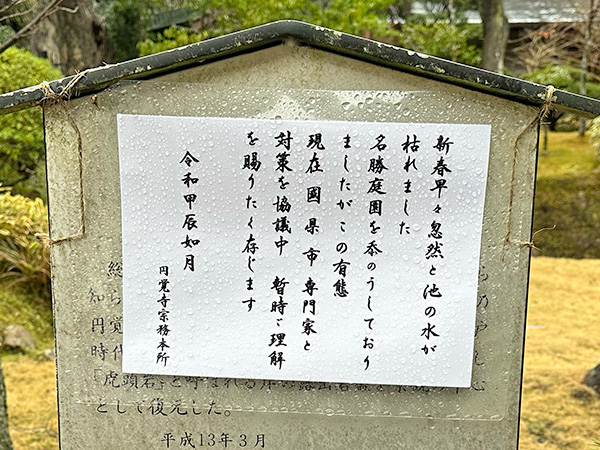 新春早々忽然と池の水が
枯れました
名勝庭園を忝のうしており
ましたがこの有態
現在 國県市 専門家と
対策を協議中 暫時ご理解
を賜りたく存じます
令和甲辰如月
円覚寺宗務本所
総
知ら
円覚
時代
「虎頭岩」と呼ばれる
として復元した。
平成13年3月